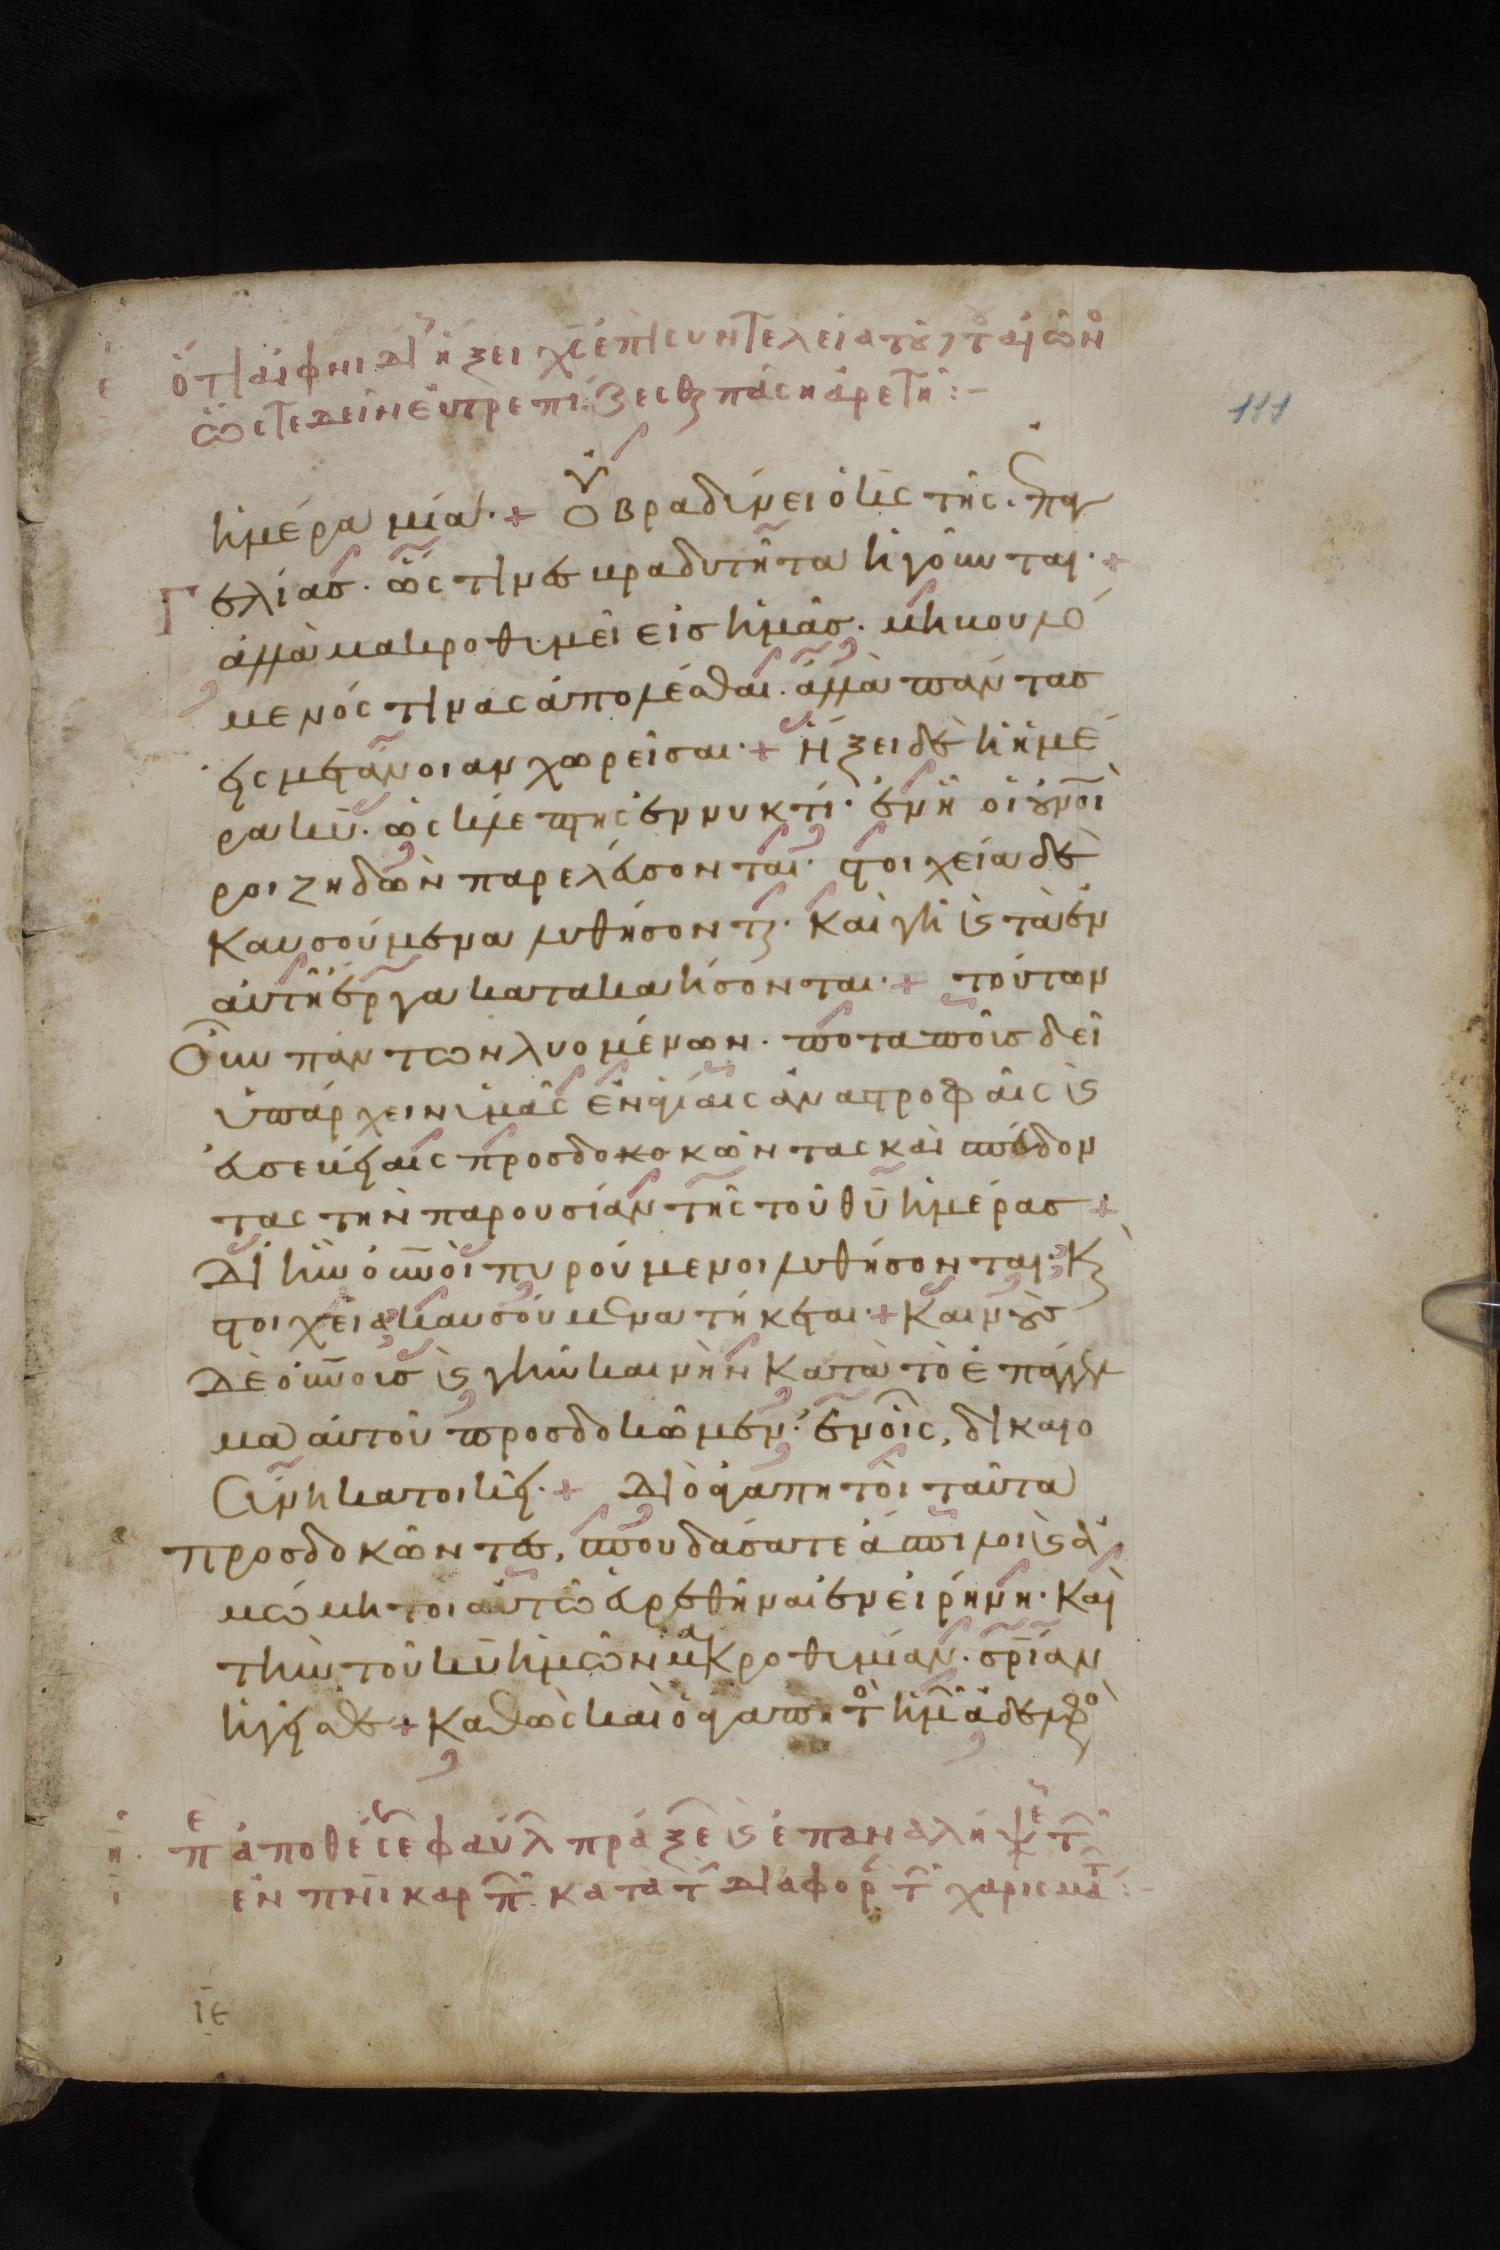 ὅτι αἰφνιδί ἥξει χς ἐπὶ συντελεία τοῦ τοῦ αἰῶν
ὥστε δεῖν εὐτρεπίζεσθαι πάση ἀρετῆ :–
111
ἡμέρα μία· + Οὐ βραδύνει ὁ κς τῆς ἐπαγ
γελίας· ὥς τινες βραδυτῆτα ἡγοῦνται· +
ἀλλὰ μακροθυμεῖ εἰς ἡμᾶς· μὴ βουλό
μενός τινας ἀπολέσθαι· ἀλλὰ πάντας
εἰς μετάνοιαν χωρεῖσαι· + Ἥξει δὲ ἡ ἡμέ
ρα κυ· ὡς κλέπτης ἐν νυκτί· ἐν ἧ οἱ οὐνοὶ
ροιζηδὼν παρελεύσονται· στοιχεία δὲ
καυσούμενα λυθήσονται· καὶ γῆ καὶ τὰ ἐν
αὐτῆ ἔργα κατακαήσονται· + τούτων
οὖν πάντων λυομένων· ποταποῖς δεῖ
ὑπάρχειν ὑμᾶς ἐν ἁγίαις ἀναστροφαῖς καὶ
εὐσεβείαις προσδοκοκῶντας καὶ σπεύδον
τας τὴν παρουσίαν τῆς τοῦ θυ ἡμέρας +
δι ἣν οὐνοὶ πυρούμενοι λυθήσονται· καὶ
στοιχεῖα καυσούμενα τήκεται· + Καινοὺς
δὲ οὐνοὺς καὶ γῆν καινὴν κατὰ τὸ ἐπάγγελ
μα αὐτοῦ προσδοκῶμεν· ἐν οἷς, δικαιο
σύνη κατοικεῖ· + Διὸ ἀγαπητοὶ ταῦτα
προσδοκῶντες, σπουδάσατε ἄσπιλοι καὶ ἀ
μώμητοι αὐτῶ εὑρεθῆναι ἐν εἰρήνη· Καὶ
τὴν τοῦ κυ ἡμῶν μακροθυμίαν· σρίαν
ἡγεῖσθε + καθὼς καὶ ὁ ἀγαπητὸ ἡμ ἀδελφὸ
πε ἀποθέσε φαύλ πράξε καὶ ἐπαναλήψε τ
ἐν πνι καρπ κατὰ τ διαφορ τ χαρισμάτ :–
ιε